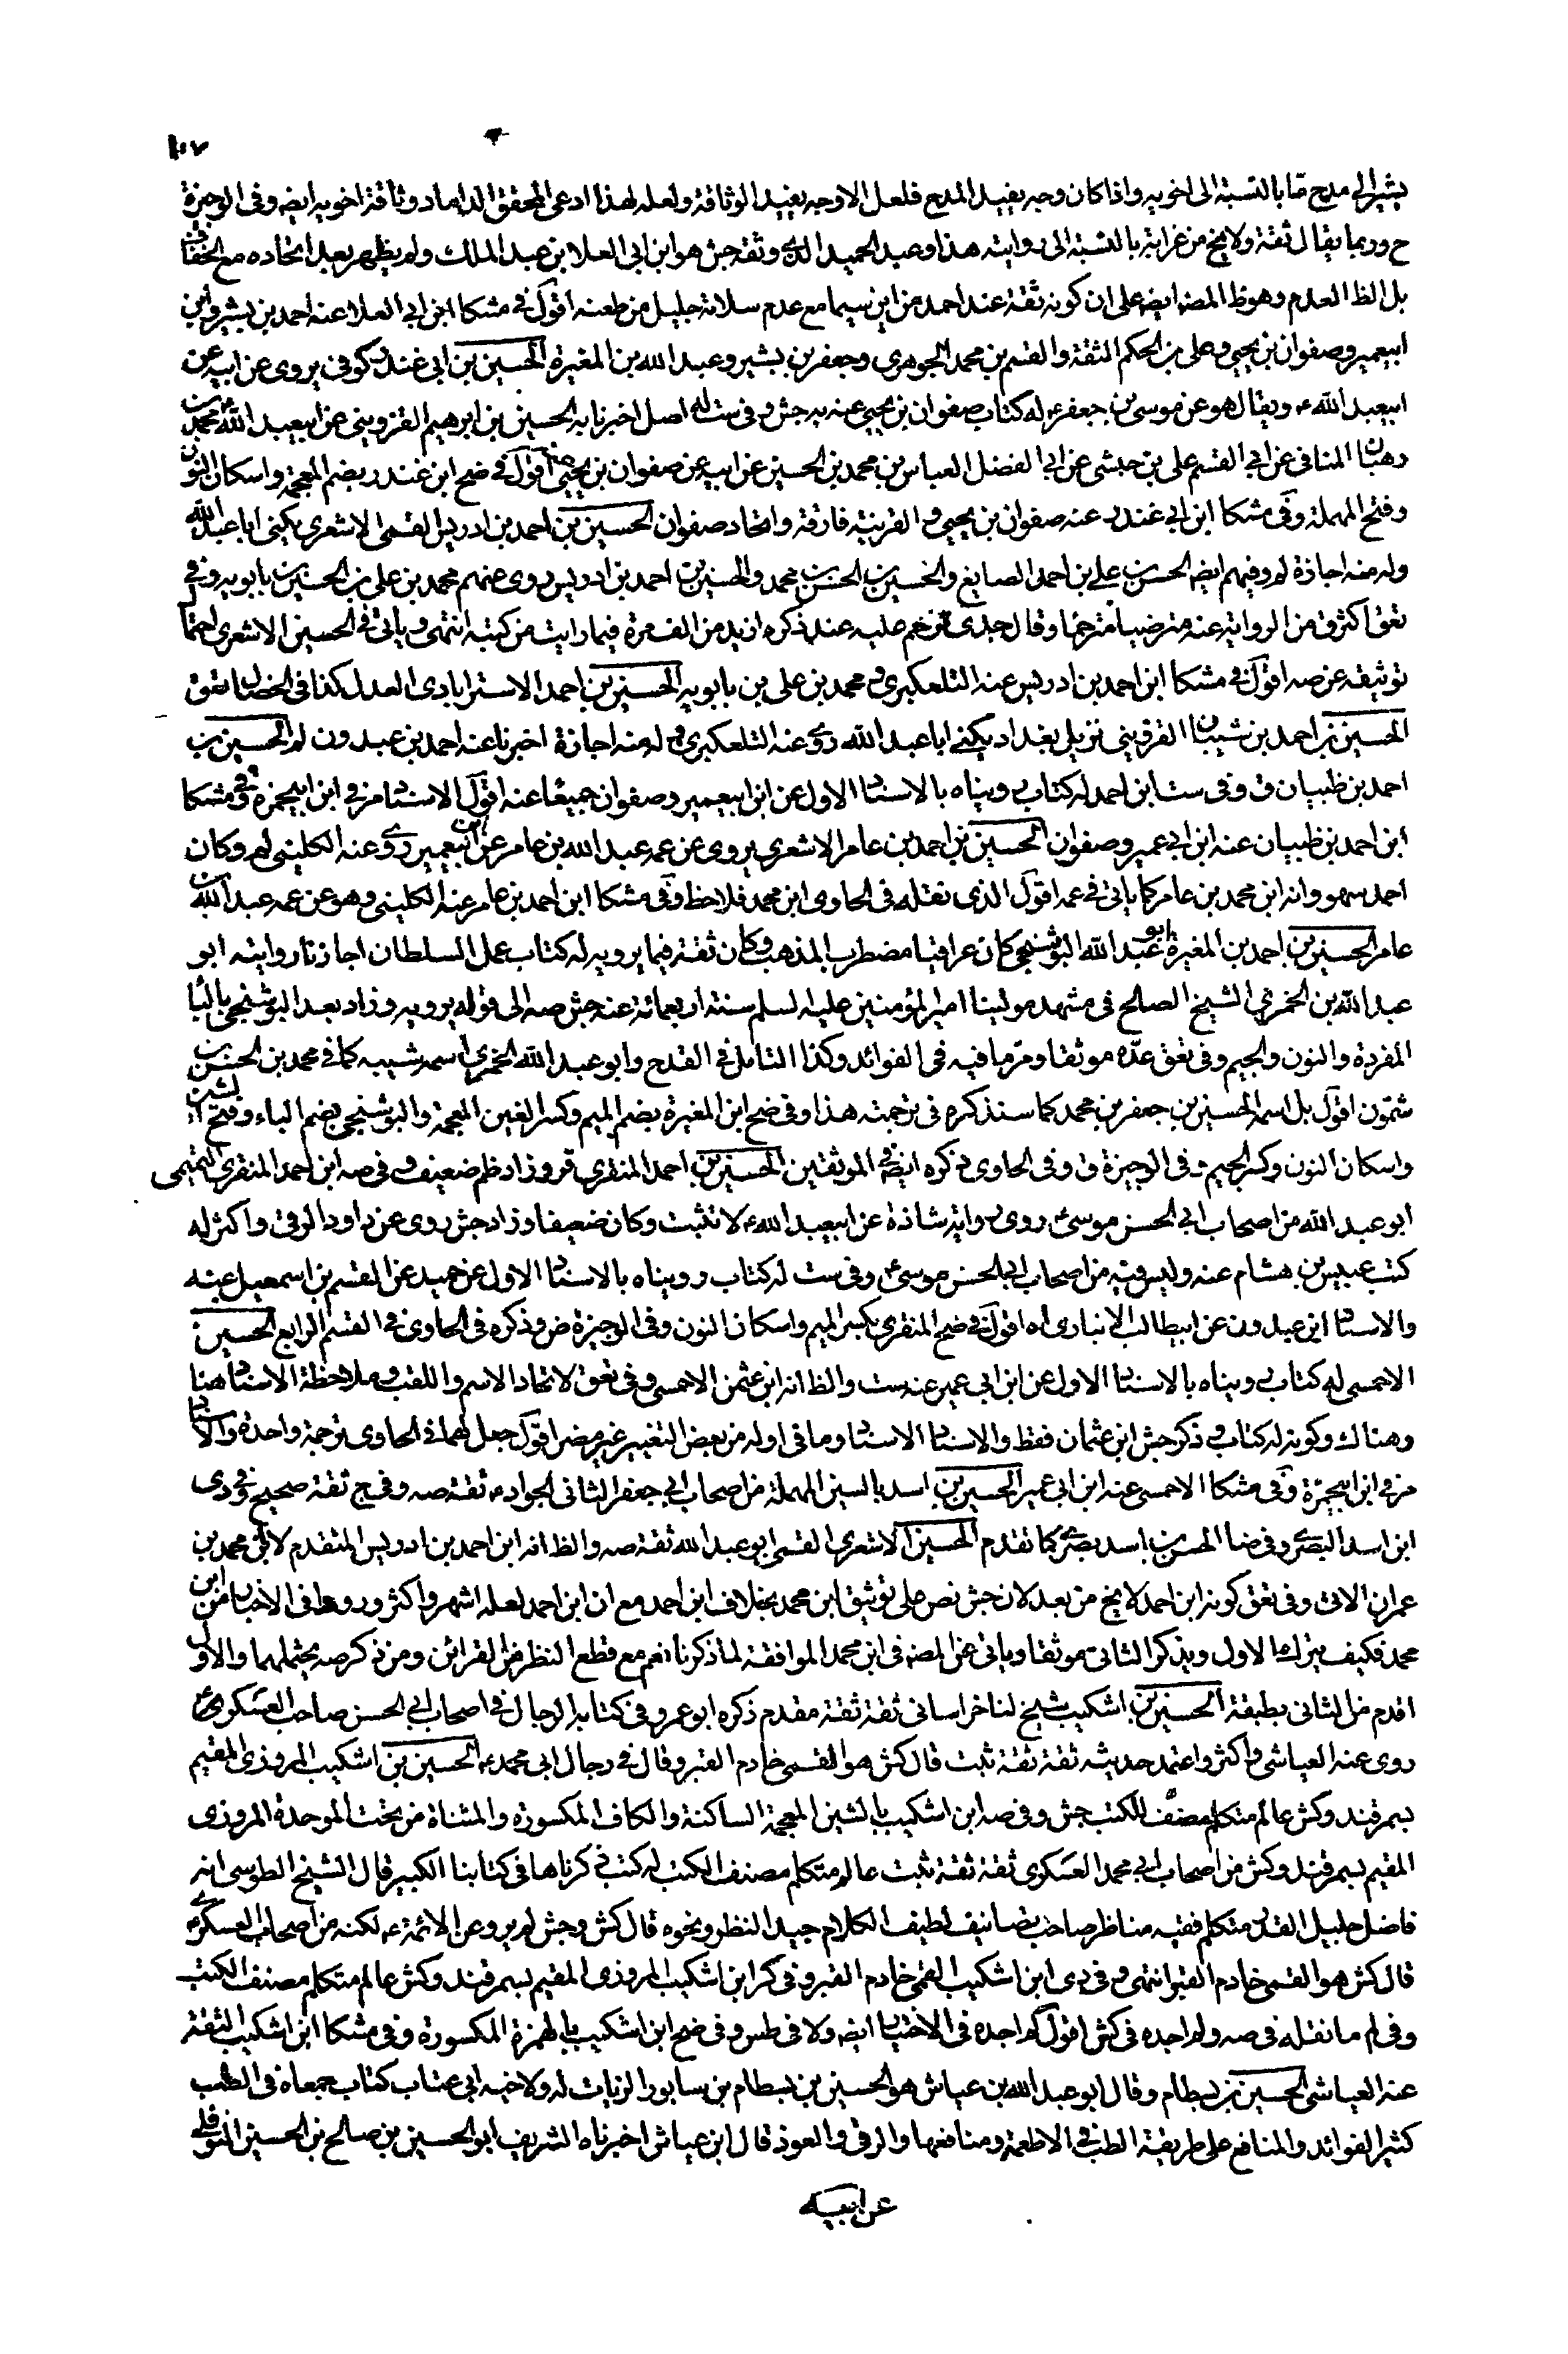 ١٠٧
يشير الى مدح ما بالنسبة الى اخويه واذا كان وجه يفيد المدح فلعل الاوجه يفيد الوثاقة ولعله لهذا ادعى المحقق الداماد وثاقة اخويه ايضه وفى الوجيزة
ح وربما يقال ثقة ولا يخ من غرابة بالنسبة الى روايته هذا وعبد الحميد الذى وثقه جش هو ابن ابى العلا بن عبد الملك ولم يظهر بعد اتحاده مع الخفاف
بل الظ العدم وهو ظ المصه ايضه على ان كونه ثقة عند احمد من اين سيما مع عدم سلامة جليل من طعنه اقول فى مشكا ابن ابى العلا عنه احمد بن بشير وابن
ابيعمير وصفوان بن يحيى وعلى بن الحكم الثقة والقسم بن محمد الجوهرى وجعفر بن بشير وعبد الله بن المغيرة الحسين بن ابى غندر كوفى يروى عن ابيه عن
ابيعبد الله ع ويقال هو عن موسى بن جعفر ع له كتاب صفوان بن يحيى عنه به جش وفى ست له اصل اخبرنا به الحسين بن ابرهيم القزوينى عن ابيعبد الله محمد بن
وهبان المنافى عن ابى القسم على بن حبشى عن ابى الفضل العباس بن محمد بن الحسين عن ابيه عن صفوان بن يحيى عنه اقول فى ضح ابن غندر بضم المعجمة واسكان النون
وفتح المهملة وفى مشكا ابن ابى غندر عنه صفوان بن يحيى و القرينة فارقة واتحاد صفوان الحسين بن احمد بن ادريس القمى الاشعرى يكنى ابا عبد الله
وله منه اجازة لم وفيهم ايضه الحسن بن على بن احمد الصايغ والحسين بن الحسن بن محمد والحسين بن احمد بن ادريس روى عنهم محمد بن على بن الحسين بن بابويه وفى
تعق اكثر فى من الرواية عنه مترضيا مترحما وقال جدى ترحم عليه عند ذكره ازيد من الف مرة فيما رايت من كتبه انتهى وياتى فى الحسين الاشعرى احتمال
توثيقه عن صه اقول فى مشكا ابن احمد بن ادريس عنه التلعكبرى و محمد بن على بن بابويه الحسين بن احمد الاسترابادى العدل كذا فى الخصال تعق
الحسين بن احمد بن شيبان القزوينى نزيل بغداد يكنى ابا عبد الله روى عنه التلعكبرى و له منه اجازة اخبرنا عنه احمد بن عبدون لم الحسين بن
احمد بن ظبيان ق وفى ست ابن احمد له كتاب رويناه بالاسناد الاول عن ابن ابيعمير وصفوان جميعا عنه اقول الاسناد مر فى ابن ابيحمزه وفى مشكا
ابن احمد بن ظبيان عنه ابن ابى عمير وصفوان الحسين بن احمد بن عامر الاشعرى يروى عن عمه عبد الله بن عامر عن ابن ابيعمير روى عنه الكلينى لم وكان
احمد سهو وانه ابن محمد بن عامر كما ياتى فى عمه اقول الذى نقله فى الحاوى ابن محمد فلاحظ وفى مشكا ابن احمد بن عامر عنه الكلينى وهو عن عمه عبد الله بن
عامر الحسين بن احمد بن المغيرة ابو عبد الله البوشنجى كان عراقيا مضطرب المذهب وكان ثقة فيما يرويه له كتاب عمل السلطان اجازنا روايته ابو
عبد الله بن الخمرى الشيخ الصالح فى مشهد مولينا امير المؤمنين عليه السلم سنة اربعمائة عنه جش صه الى قوله يرويه وزاد بعد البوشنجى بالباء
المفردة والنون والجيم وفى تعق عده موثقا ومر ما فيه فى الفوائد وكذا التامل فى القدح وابو عبد الله الخمرى اسمه شيبه كما فى محمد بن الحسن بن
شمون اقول بل اسمه الحسين بن جعفر بن محمد كما سنذكره فى ترجمته هذا وفى ضح ابن المغيرة بضم الميم وكسر الغين المعجمة والبوشنجى بضم الباء وفتح الشين
واسكان النون وكسر الجيم و فى الوجيزة ق وفى الحاوى ذكره ايضه فى الموثقين الحسين بن احمد المنقرى قر وزاد ظم ضعيف و فى صه ابن احمد المنقرى التميمى
ابو عبد الله من اصحاب ابى الحسن موسى ع روى رواية شاذة عن ابيعبد الله ع لا تثبت وكان ضعيفا وزاد جش روى عن داود الرقى واكثر له
كتب عبيس بن هشام عنه وليس فيه من اصحاب ابى الحسن موسى ع وفى ست له كتاب رويناه بالاسناد الاول عن حميد عن القسم بن اسمعيل عنه
والاسناد ابن عبدون عن ابيطالب الانبارى اه اقول فى ضح المنقرى بكسر الميم واسكان النون وفى الوجيزة ض وذكره فى الحاوى فى القسم الرابع الحسين
الاحمسى له كتاب رويناه بالاسناد الاول عن ابن ابى عمير عنه ست والظ انه ابن عثمن الاحمسى وفى تعق لاتحاد الاسم واللقب و ملاحظة الاسناد هنا
وهناك وكونه له كتاب و ذكر جش ابن عثمان فقط والاسناد الاسناد وما فى اوله من بعض التغيير غير مضر اقول جعل لهما فى الحاوى ترجمة واحدة والاسناد
مر فى ابن ابيحمزة وفى مشكا الاحمسى عنه ابن ابى عمير الحسين بن اسد بالسين المهملة من اصحاب ابى جعفر الثانى الجواد ع ثقة صه وفى ج ثقة صحيح وفى دى
ابن اسد البصرى وفى ضا الحسن بن اسد بصرى كما تقدم الحسين الاشعرى القمى ابو عبد الله ثقة صه والظ انه ابن احمد بن ادريس المتقدم لا ابن محمد بن
عمران الاتى وفى تعق كونه ابن احمد لا يخ من بعد لان جش نص على توثيق ابن محمد بخلاف ابن احمد مع ان ابن احمد لعله اشهر واكثر ورودا فى الاخبار من ابن
محمد فكيف يترك الاول ويذكر الثانى موثقا وياتى عن المصه فى ابن محمد الموافقة لما ذكرنا نعم مع قطع النظر من القرائن ومن ذكر صه يحتملهما والاول
اقدم من الثانى بطبقة الحسين بن اشكيب شيخ لنا خراسانى ثقة ثقة مقدم ذكره ابو عمرو فى كتابه الرجال فى اصحاب ابى الحسن صاحب العسكر ع
روى عنه العياشى واكثر واعتمد حديثه ثقة ثقة ثبت قال كش هو القمى خادم القبر وقال فى رجال ابى محمد ع الحسين بن اشكيب المروزى المقيم
بسمرقند وكش عالم متكلم مصنف للكتب جش وفى صه ابن اشكيب بالشين المعجمة الساكنة والكاف المكسورة والمثناة من تحت الموحدة المروزى
المقيم بسمرقند وكش من اصحاب ابى محمد العسكرى ثقة ثقة ثبت عالم متكلم مصنف الكتب له كتب ذكرناها فى كتابنا الكبير قال الشيخ الطوسى انه
فاضل جليل القدر متكلم فقيه مناظر صاحب تصانيف لطيف الكلام جيد النظر ونحوه قال كش وجش لم يرو عن الائمة ع لكنه من اصحاب العسكرى ع
قال كش هو القمى خادم القبر انتهى و فى دى ابن اشكيب القمى خادم القبر وفى كر ابن اشكيب المروزى المقيم بسمرقند وكش عالم متكلم مصنف الكتب
وفى لم ما نقله فى صه ولم اجده فى كش اقول لم اجده فى الاختيار ايضه ولا فى طس وفى ضح ابن اشكيب بالهمزة المكسورة وفى مشكا ابن اشكيب الثقة
عنه العياشى الحسين بن بسطام وقال ابو عبد الله بن عياش هو الحسين بن بسطام بن سابور الزيات له ولاخيه ابى عتاب كتاب جمعاه فى الطب
كثير الفوائد والمنافع على طريقة الطب فى الاطعمة ومنافعها والرقى والعوذ قال ابن عياش اخبرناه الشريف ابو الحسين بن صالح بن الحسين النوفلى
عن ابيه